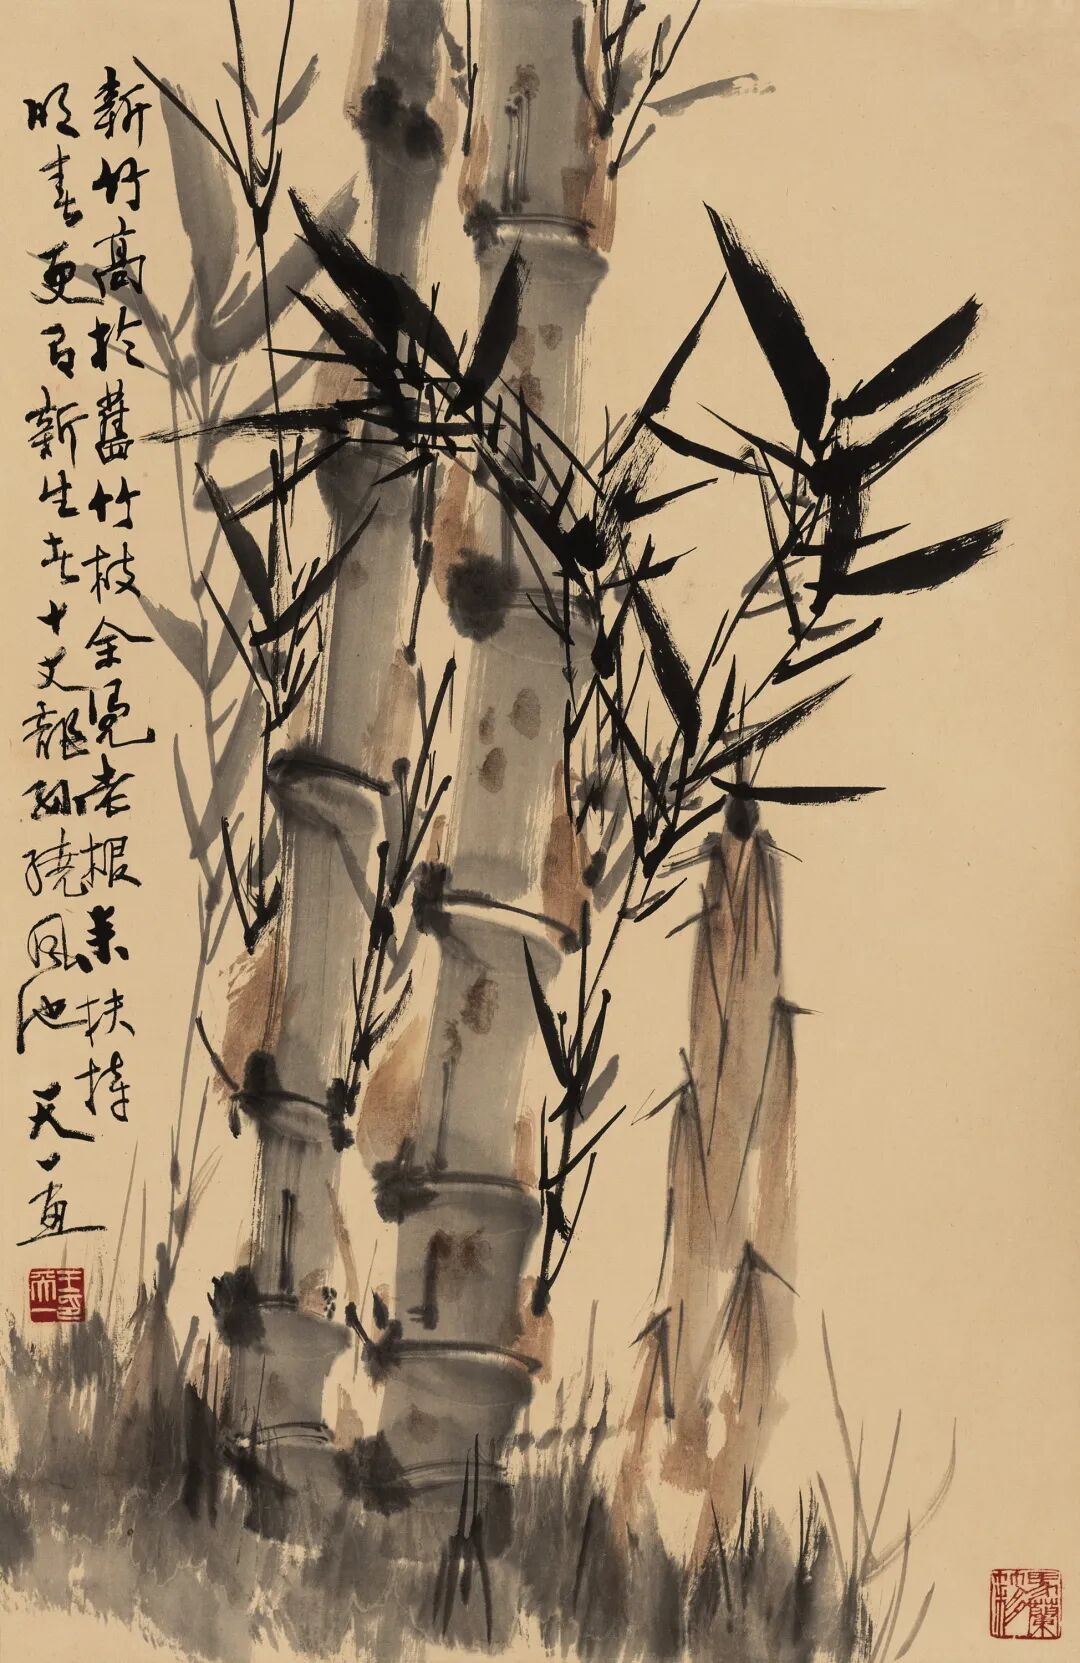 新竹高於舊竹枝全凭老根来扶持
明春更有新生者十丈龍孫繞鳳池 天一画
王天一印